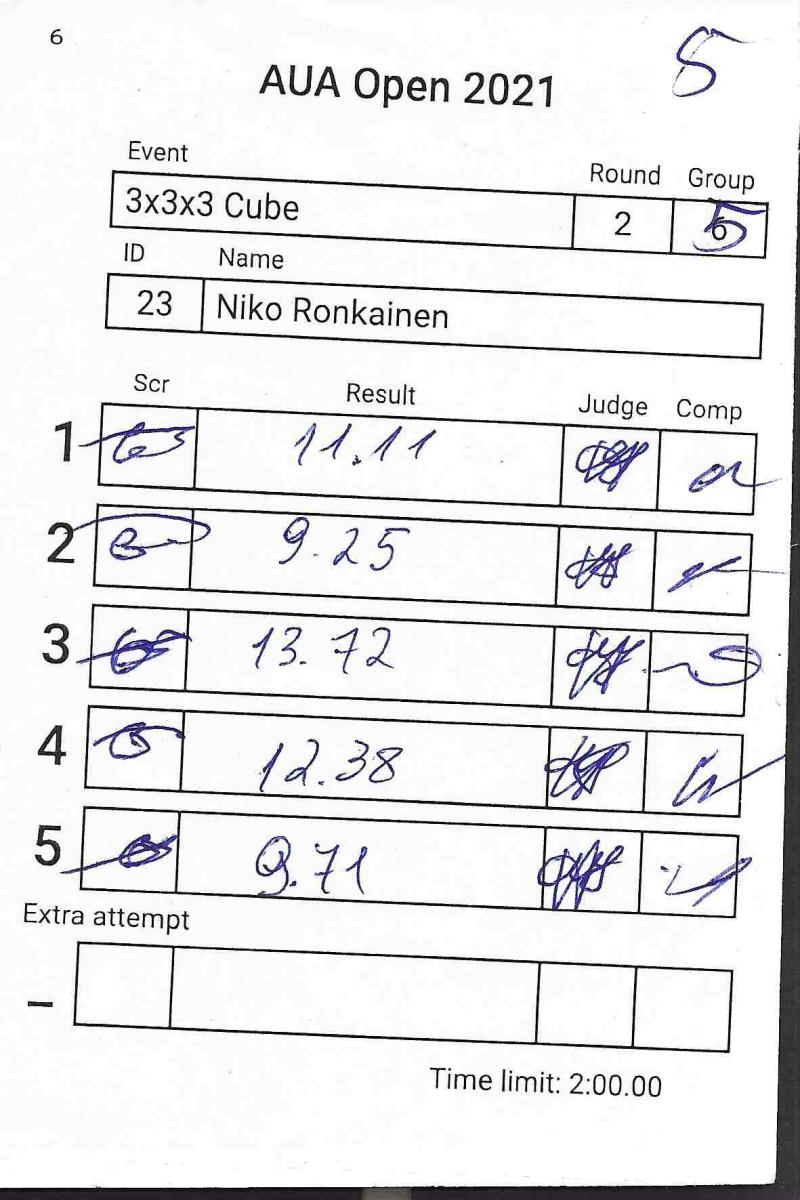 6
5
AUA Open 2021
Event Round Group
3x3x3 Cube 2 5
ID Name
23 Niko Ronkainen
Scr Result Judge Comp
1 11.11
2 9.25
3 13.72
4 12.38
5 9.71
Extra attempt
–
Time limit: 2:00.00